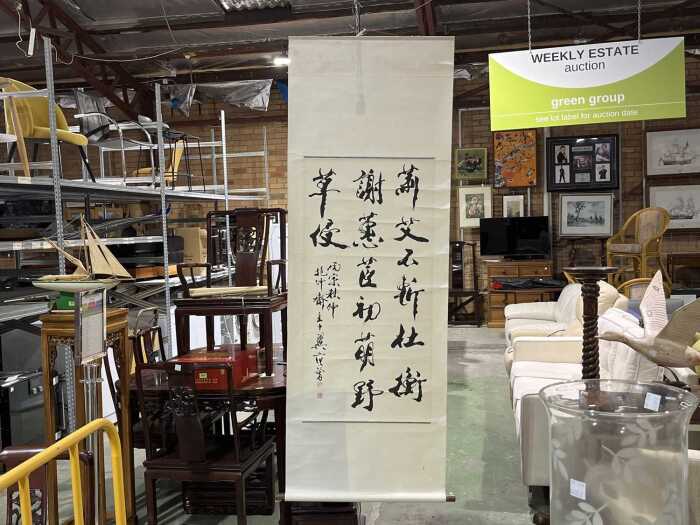 WEEKLY ESTATE
auction
green group
see lot label for auction date
蕭艾不斬杜衡
謝蕙茝初萌野
草侵